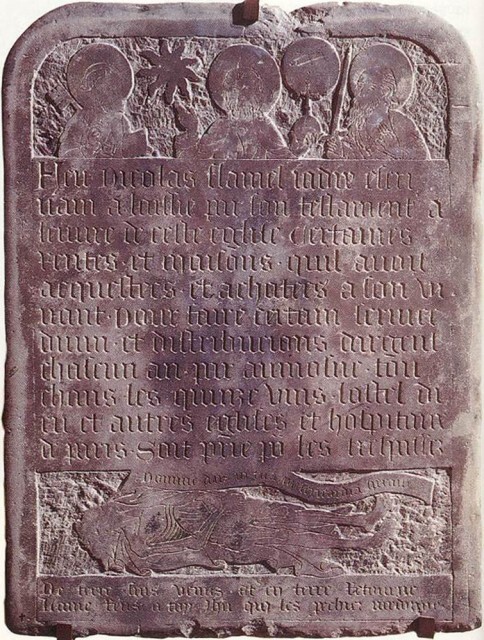 Feu nicolas flamel iadis escri
uain a laissie par son testament a
leuure de ceste eglise certaines
rentes et maisons quil auoit
acquestees et achatees a son vi
uant pour faire certain seruice
diuin et distribucions dargent
chascun an par aumosne tou
chans les quinze vins lostel di
eu et autres eglises et hospitaux
de paris Soit prie por les trespassez
Domine deus in tua misericordia speraui
De terre suis venus et en terre retourne
Lame rens a toy Ihu qui les pechiez pardonne